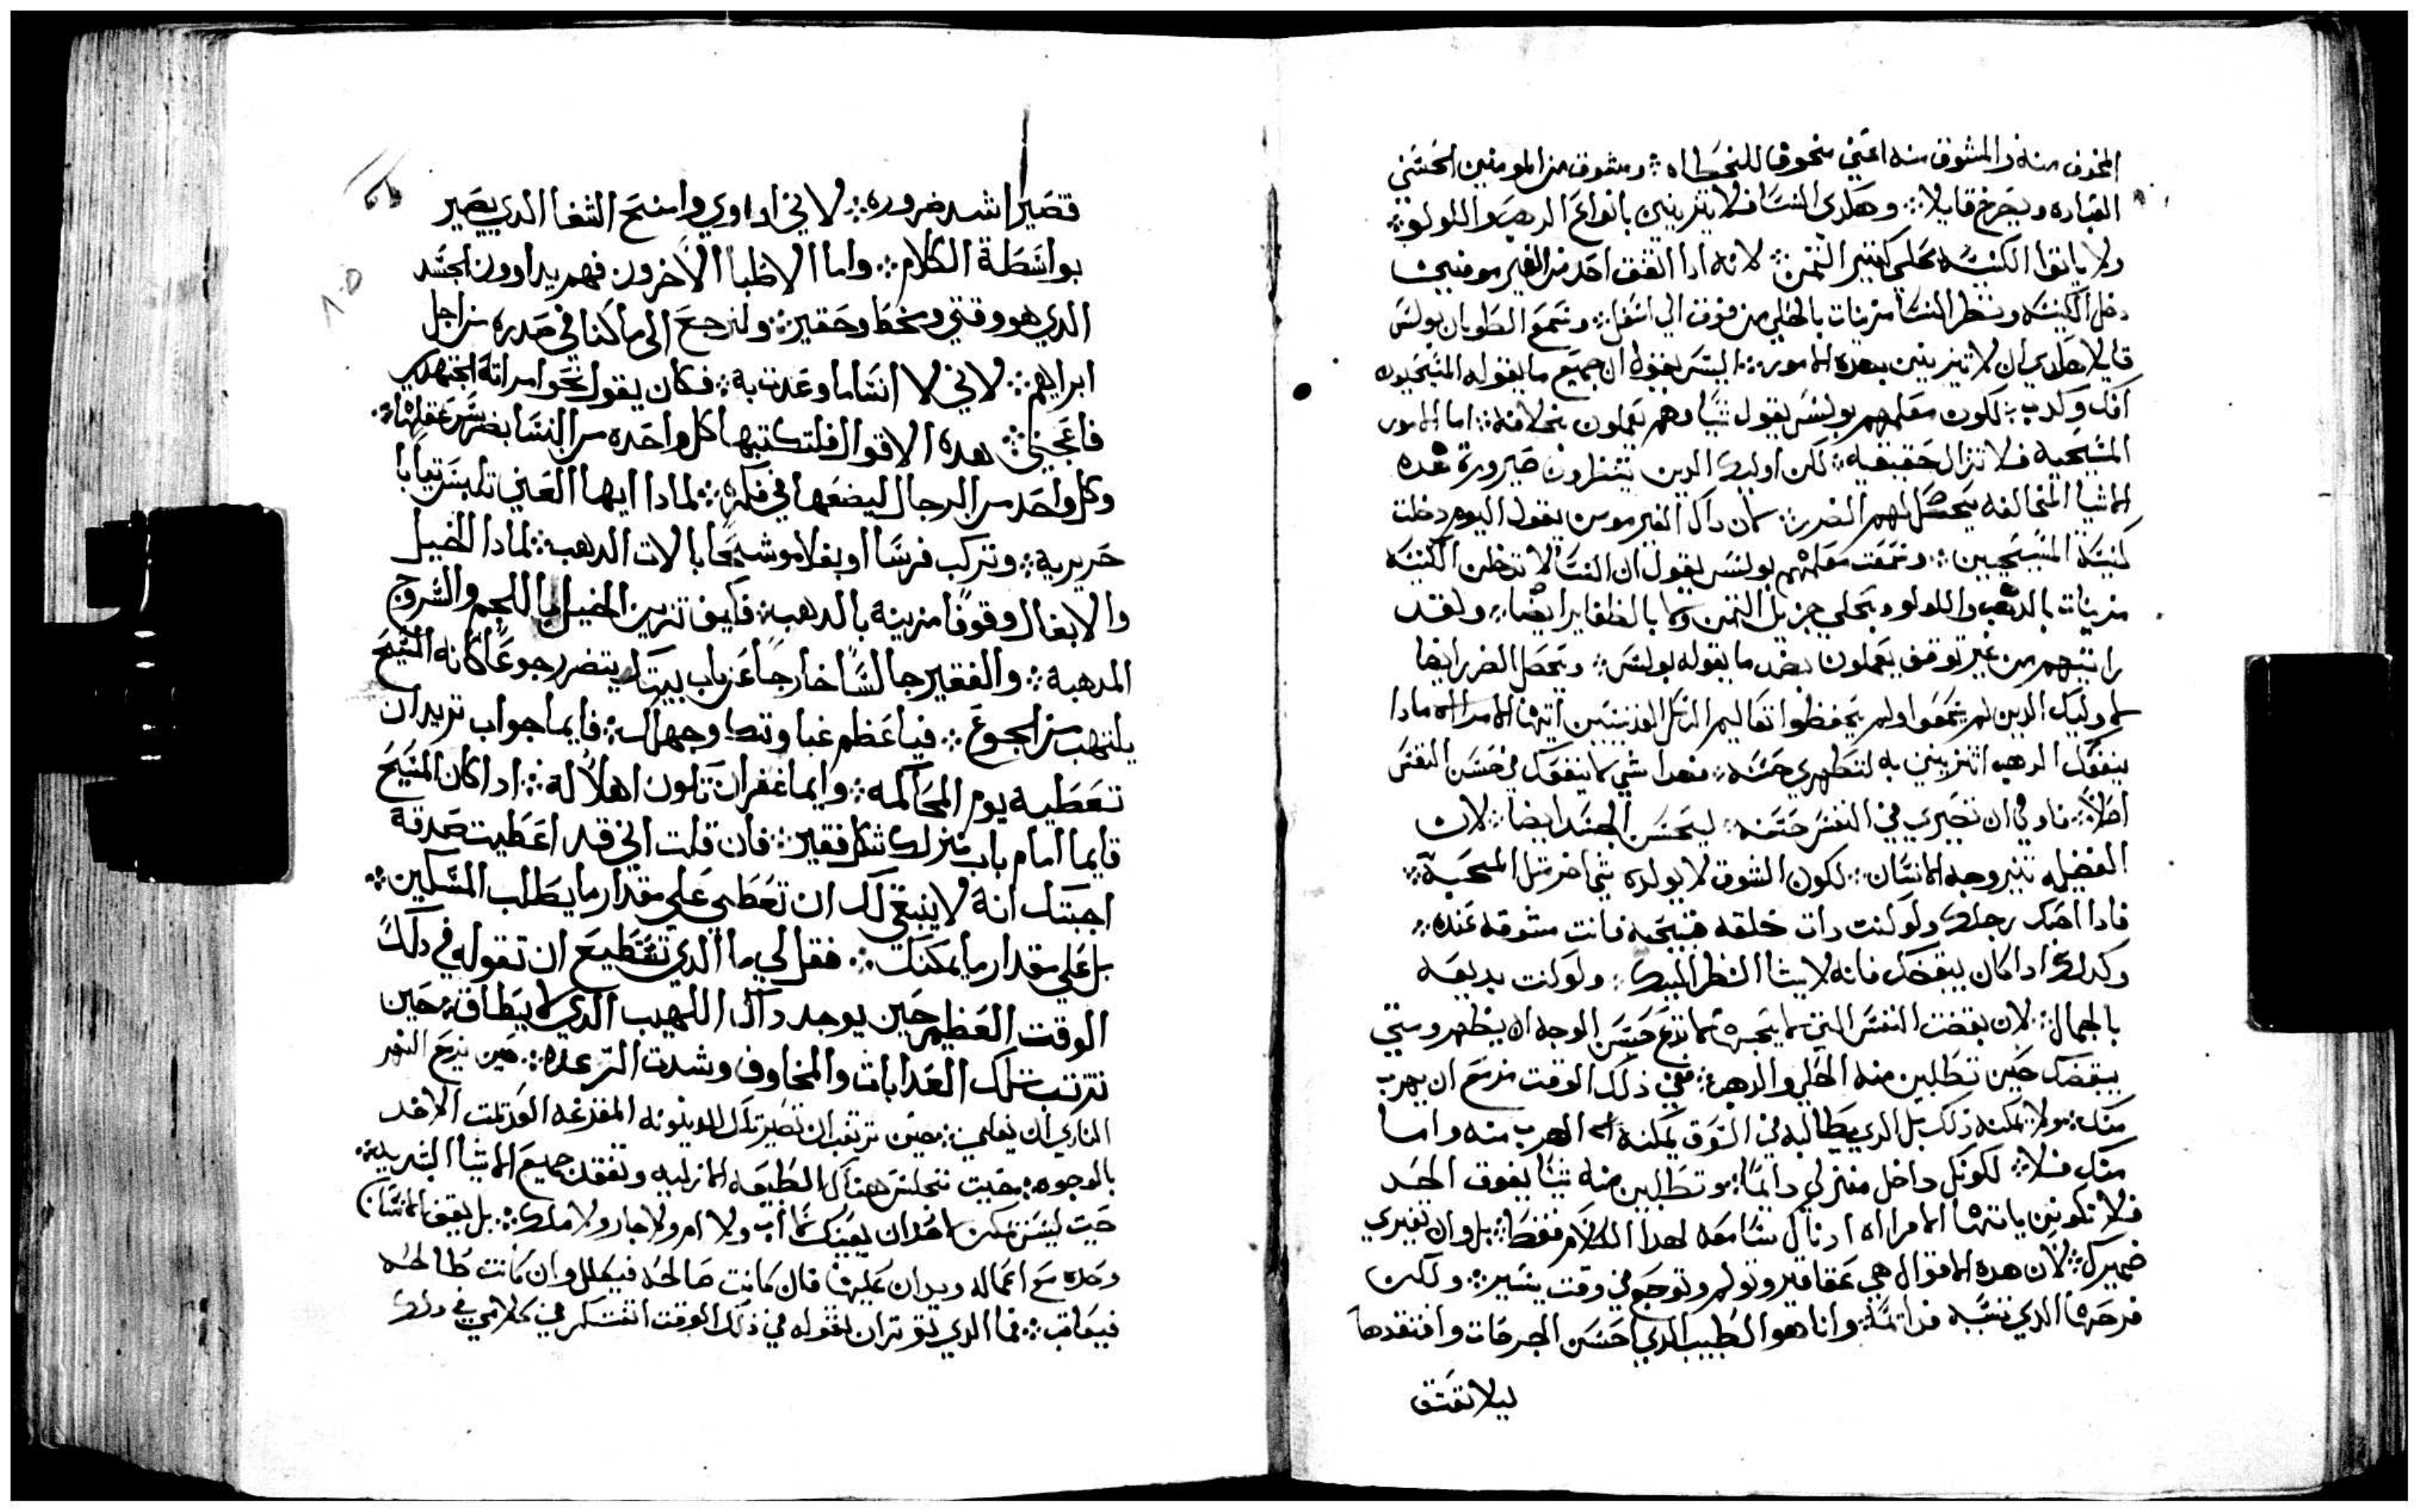 المخوف منه والمشوق منه اعني مخوفا للخطاه ومشوق من المومنين الحسني
العباده ويصرخ قايلا وهكدي النسا فلا يتزينين بانواع الدهب واللولو
ولا ياتوا الكنيسه بحلي كتير التمن لانه ادا اتفق احد من الغير مومنين
دخل الكنيسه ونظر النسا مزينات بالحلي من فوق الي اسفل وسمع الطوبان بولس
قايلا هكدي ان لا تتزينين بهده الامور اليس يقول ان جميع ما يقوله المسيحيون
افك وكدب لكون معلمهم بولس يقول شيا وهم يعملون بخلافه اما الامور
المسيحيه فلا تزال حقيقيه لكن اوليك الدين ينتظرون صيرورة هده
الاشيا المخالفه يحصل لهم الضرر كان داك الغير مومن يقول اليوم دخلت
كنيسة المسيحيين وسمعت معلمهم بولس يقول ان النسا لا تدخلن الكنيسه
مزينات بالدهب واللولو وبحلي جزيل التمن ولا بالظفاير ايضا ولقد
راتيتهم من غير توقف يعملون بضد ما يقوله بولس ويحصل الضرر ايضا
لاوليك الدين لم يسمعوا ولم يحفظوا تعاليم الرسل القديسين ايتها الامراه مادا
ينفعك الدهب اتتزيني به لتظهري حسنه فهدا شي لا ينفعك في حسن النفس
اصلا فاد في ان تصيري في النفس حسنه ليحسن الجسد ايضا لان
الفضيله تنير وجه الانسان لكون الشوق لا يولده شي اخر مثل المحبة
فادا احبك رجلك ولو كنت دات خلقه قبيحه فانت مشوقه عنده
وكدلك ادا كان يبغضك فانه لا يشا النظر اليك ولو كنت بديعه
بالجمال لان بغضت النفس التي لا يحبها لا تدع حسن الوجه ان يظهر وستي
يبغضك حين تطلبين منه الحلي والدهب ففي ذلك الوقت مزمع ان يهرب
منك ولا يمكنه ذلك بل الدي يطالبه في السوق يمكنه الهرب منه واما
منك فلا لكونك داخل منزلي دايما وتطلبين منه شيا يفوق الحد
فلا تكونين يا ايتها الامراه ادنال سامعه لهدا الكلام فقط بل وان تغيري
ضميرك لان هده الاقوال هي عقاقير وتولم وتوجع في وقت يسير ولكن
فرحها الدي تسببه فدايما وانا هو الطبيب الدي احسن الجرحات وافتقدها
ليلا تعتق
قصير اشد ضروره لاني اداوي وامنح الشفا الدي يصير
بواسطة الكلام واما الاطبا الاخرون فهم يداوون الجسد
الدي هو وقتي ومنحط وحقير ولنرجع الى ما كنا في صدره من اجل
ابراهيم لاني لا انسا ما وعدت به فكان يقول نحو امراته اجتهدي
فاعجني هده الاقوال فلتكتبها كل واحده من النسا بضمير عقلها
وكل واحد من الرجال ليضعها في فكره لمادا ايها الغني تلبس تيابا
حريرية وتركب فرسا او بغلا موشحا بالات الدهب لمادا الخيل
والابغال وقوفا مزينه بالدهب فكيف تزين الخيل باللجم والسروج
المدهبة والفقير جالسا خارجا عن باب بيتك يتضرر جوعا كانه المسيح
يلتهب من الجوع فيا عظم غباوتك وجهلك فايما جواب تريد ان
تعطيه يوم المحاكمه وايما غفران تكون اهلا له ادا كان المسيح
قايما امام باب منزلك شكل فقير فان قلت اني قد اعطيت صدقة
اجبتك انه لا ينبغي لك ان تعطي علي مقدار ما يطلب المسكين
بل علي مقدار ما يمكنك فقل لي ما الدي تستطيع ان تقوله في دلك
الوقت العظيم حين يوجد داك اللهيب الدي لا يطاق حين
تترتب تلك العدابات والمخاوف وشدت الترعده حين يزمع النهر
الناري ان يغلي حين ترتعب ان تصير تلك الدينونه المفزعه الغير تلت الاخد
بالوجوه حيت تجلس هناك الطبيعه الازليه وتفقد جميع الاشيا البشريه
حيت ليس يمكن احد ان يعينك لا اب ولا ام ولا جار ولا ملك بل يقف الانسان
وحده مع اعماله ويدان عليها فان كانت صالحه فيكلل وان كانت طالحه
فيعاقب فما الدي توتر ان تقوله في ذلك الوقت اتفتكر في كلامي في دلك